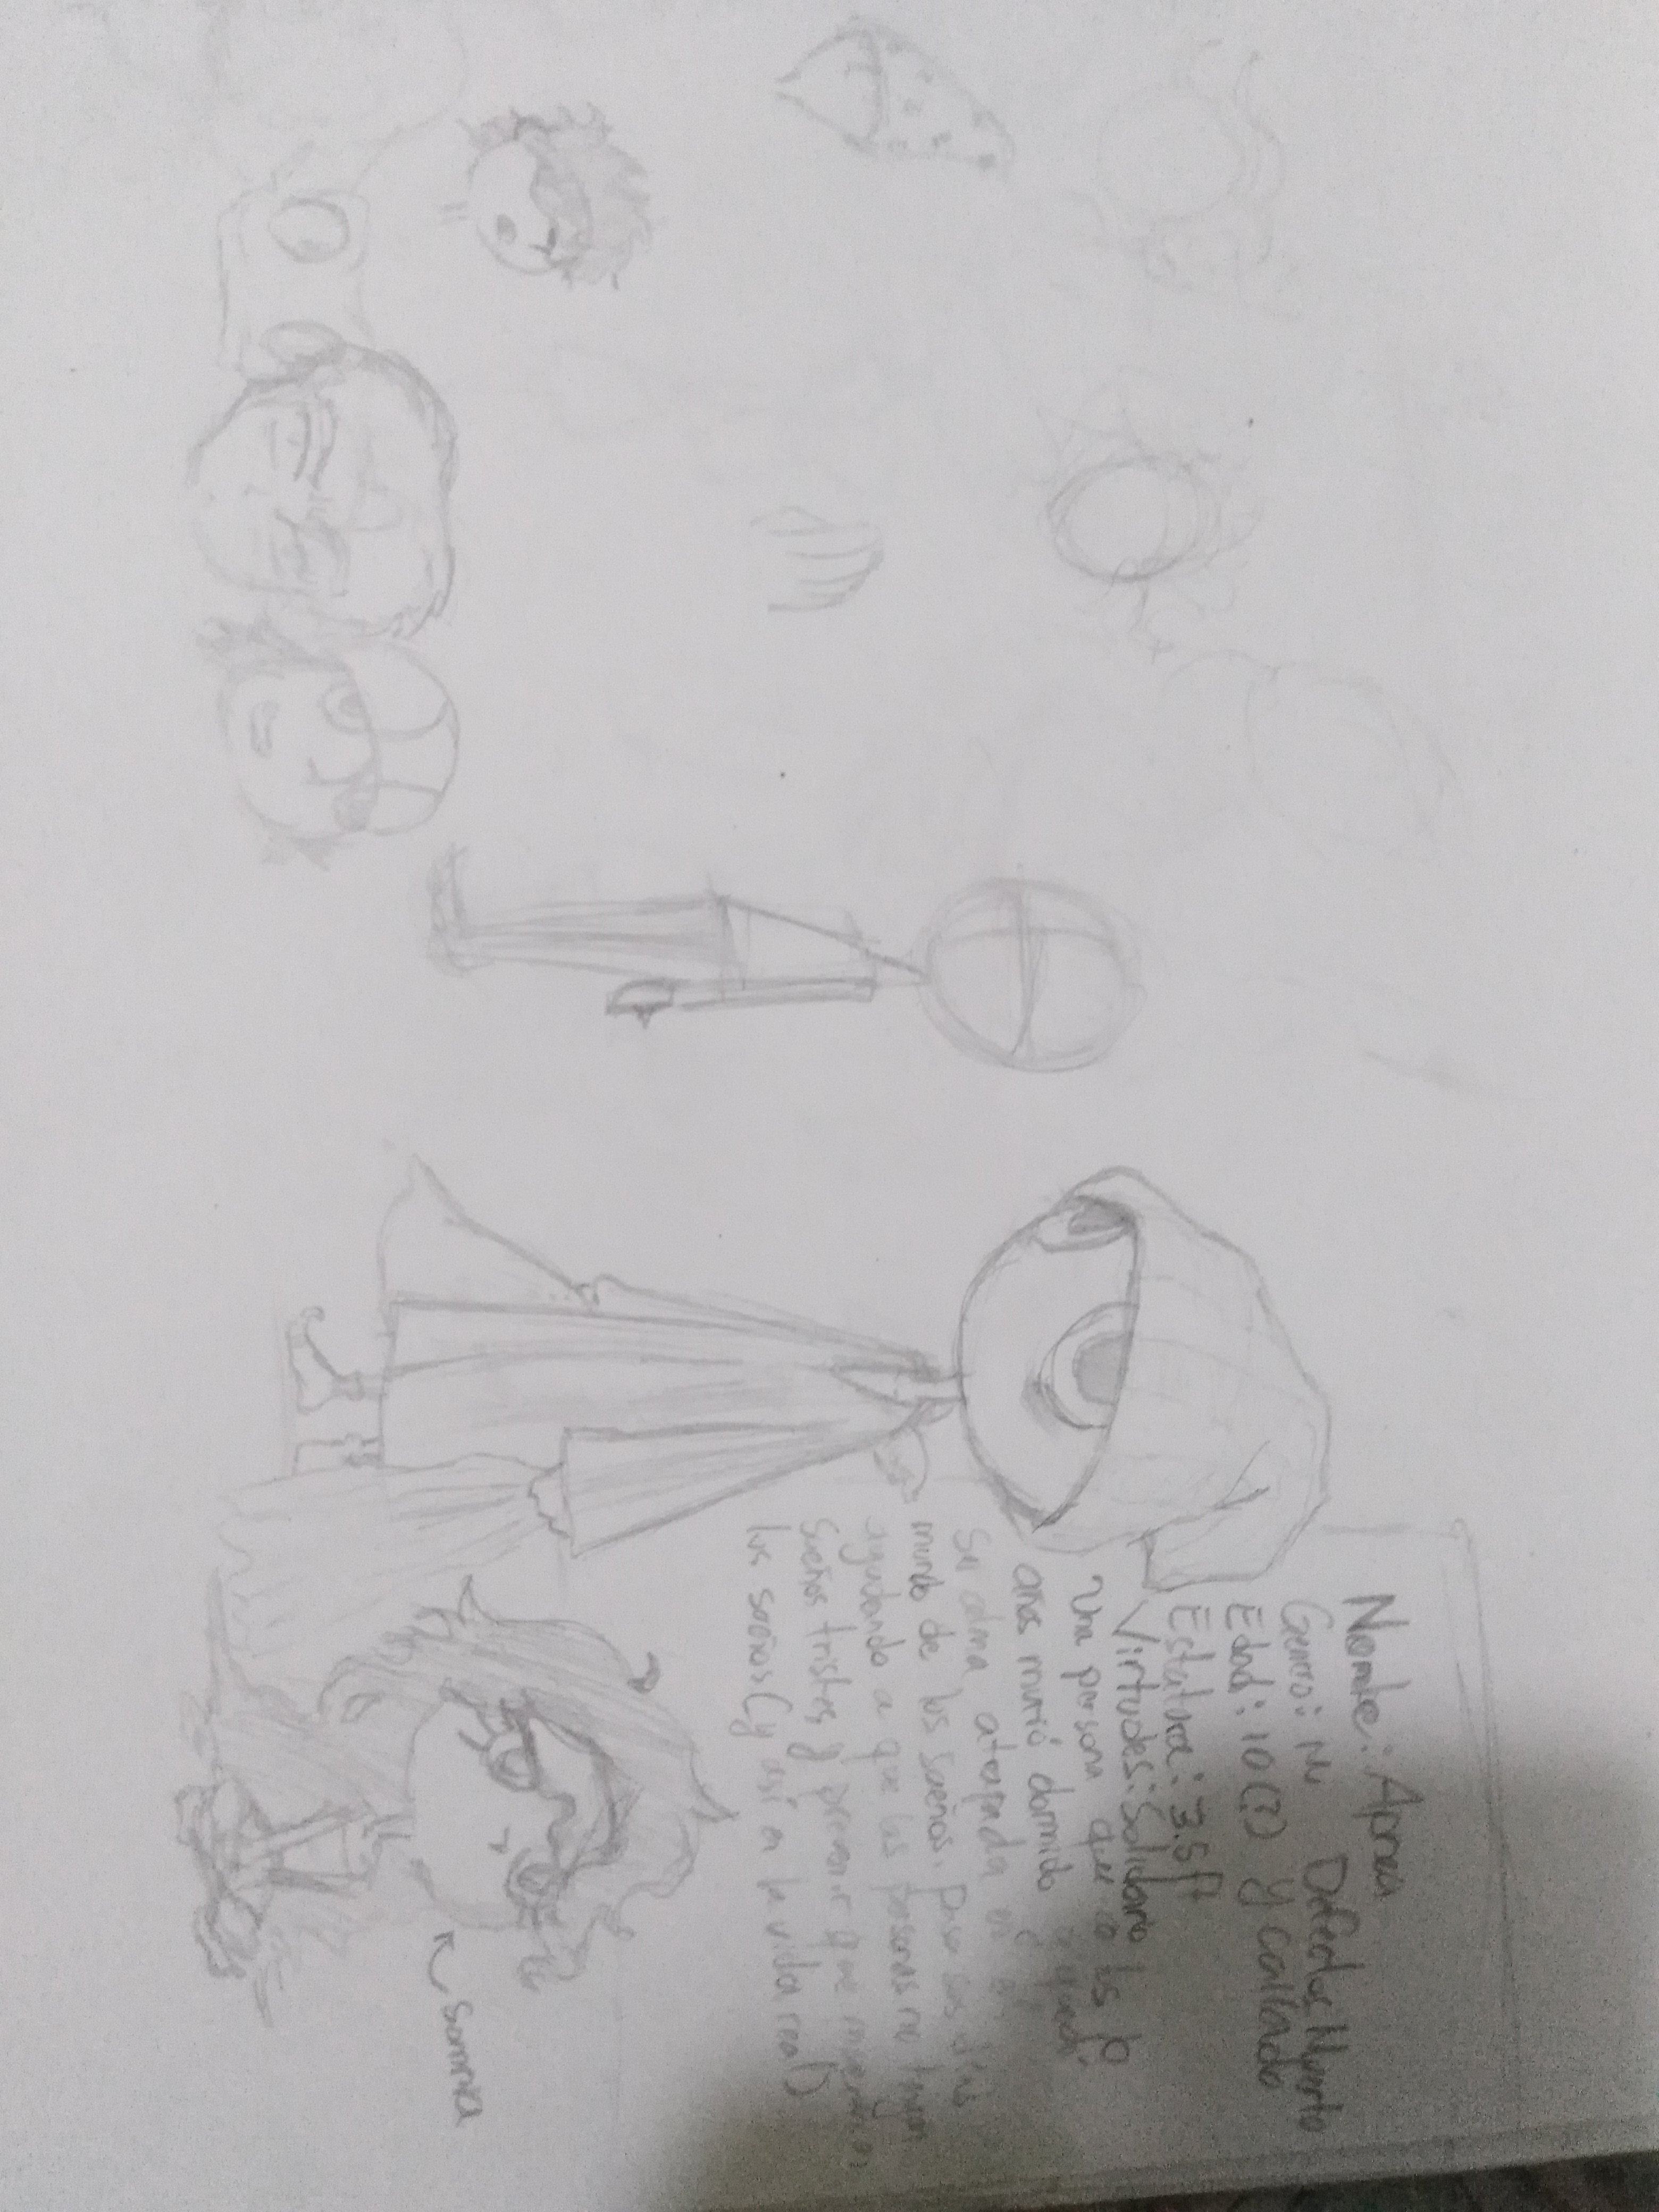 Nombre: Apnea
Genero: N Defectos: Muerto
Edad: 10(?) y callado
Estatura: 3.5 ft
Virtudes: Solidario
Una persona que a los 10
años murió dormido
Su alma atrapada en el
mundo de los sueños. pasa sus días
ayudando a que las personas no tengan
sueños tristes y prevenir que mueran en
los sueños (y así en la vida real)
Somnia